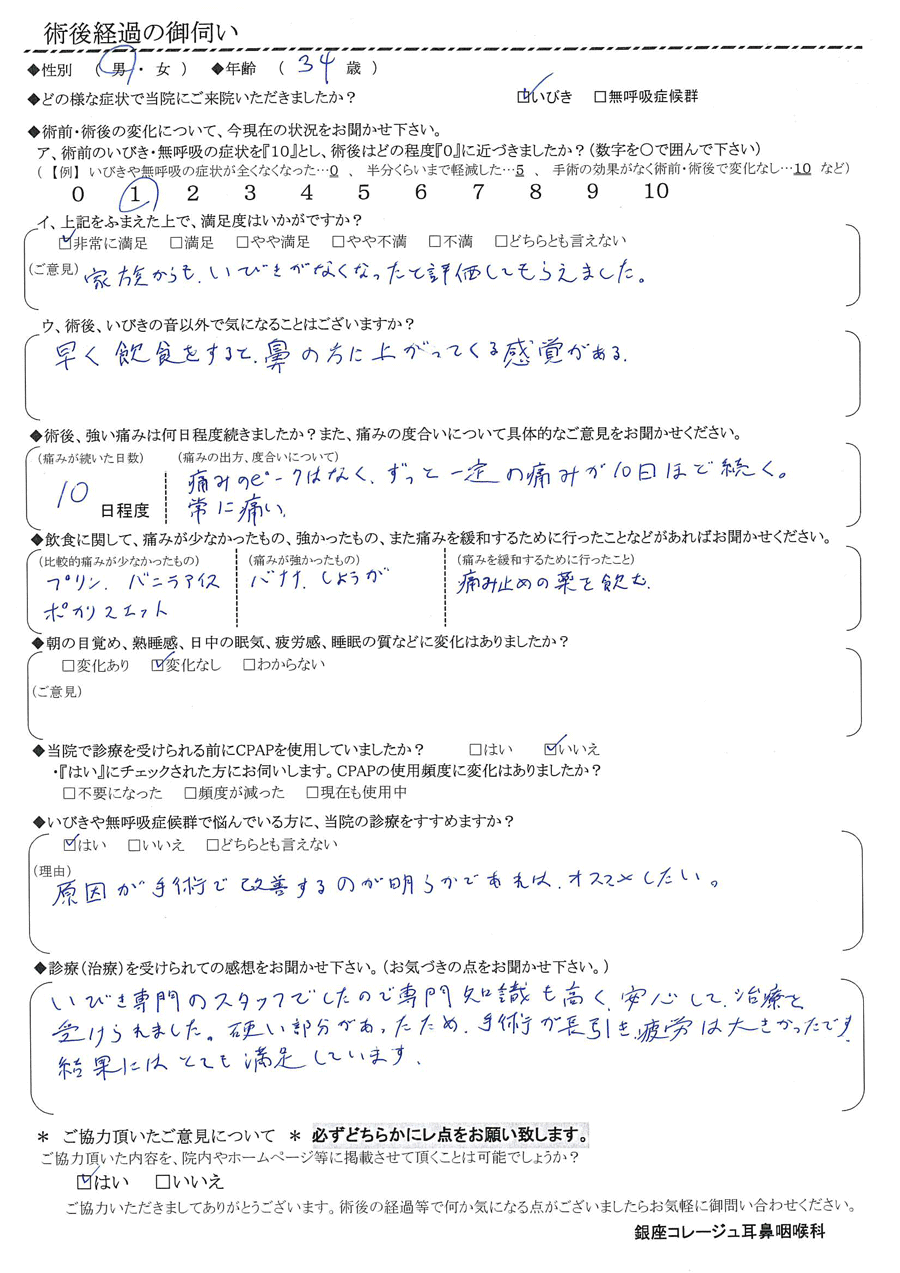 術後経過の御伺い
◆性別 ( 男 ・ 女 ) ◆年齢 ( 34 歳 )
◆どの様な症状で当院にご来院いただきましたか? ☑いびき □無呼吸症候群
◆術前・術後の変化について、今現在の状況をお聞かせ下さい。
ア、術前のいびき・無呼吸の症状を『10』とし、術後はどの程度『0』に近づきましたか?(数字を○で囲んで下さい)
(【例】 いびきや無呼吸の症状が全くなくなった…0 、 半分くらいまで軽減した…5 、 手術の効果がなく術前・術後で変化なし…10 など)
0 1 2 3 4 5 6 7 8 9 10
イ、上記をふまえた上で、満足度はいかがですか?
☑非常に満足 □満足 □やや満足 □やや不満 □不満 □どちらとも言えない
(ご意見) 家族からも、いびきがなくなったと評価してもらえました。
ウ、術後、いびきの音以外で気になることはございますか?
早く飲食をすると、鼻の方に上がってくる感覚がある。
◆術後、強い痛みは何日程度続きましたか?また、痛みの度合いについて具体的なご意見をお聞かせください。
(痛みが続いた日数) (痛みの出方、度合いについて)
10 日程度 痛みのピークはなく、ずっと一定の痛みが10日ほど続く。
常に痛い。
◆飲食に関して、痛みが少なかったもの、強かったもの、また痛みを緩和するために行ったことなどがあればお聞かせください。
(比較的痛みが少なかったもの) (痛みが強かったもの) (痛みを緩和するために行ったこと)
プリン、バニラアイス バナナ、しょうが 痛み止めの薬を飲む。
ポカリスエット
◆朝の目覚め、熟睡感、日中の眠気、疲労感、睡眠の質などに変化はありましたか?
□変化あり ☑変化なし □わからない
(ご意見)
◆当院で診療を受けられる前にCPAPを使用していましたか? □はい ☑いいえ
・『はい』にチェックされた方にお伺いします。CPAPの使用頻度に変化はありましたか?
□不要になった □頻度が減った □現在も使用中
◆いびきや無呼吸症候群で悩んでいる方に、当院の診療をすすめますか?
☑はい □いいえ □どちらとも言えない
(理由)
原因が手術で改善するのが明らかであれば、オススメしたい。
◆診療(治療)を受けられての感想をお聞かせ下さい。(お気づきの点をお聞かせ下さい。)
いびき専門のスタッフでしたので専門知識も高く、安心して、治療を
受けられました。硬い部分があったため、手術が長引き、疲労は大きかったです。
結果にはとても満足しています。
＊ ご協力頂いたご意見について ＊ 必ずどちらかにレ点をお願い致します。
ご協力頂いた内容を、院内やホームページ等に掲載させて頂くことは可能でしょうか?
☑はい □いいえ
ご協力いただきましてありがとうございます。術後の経過等で何か気になる点がございましたらお気軽に御問い合わせください。
銀座コレージュ耳鼻咽喉科